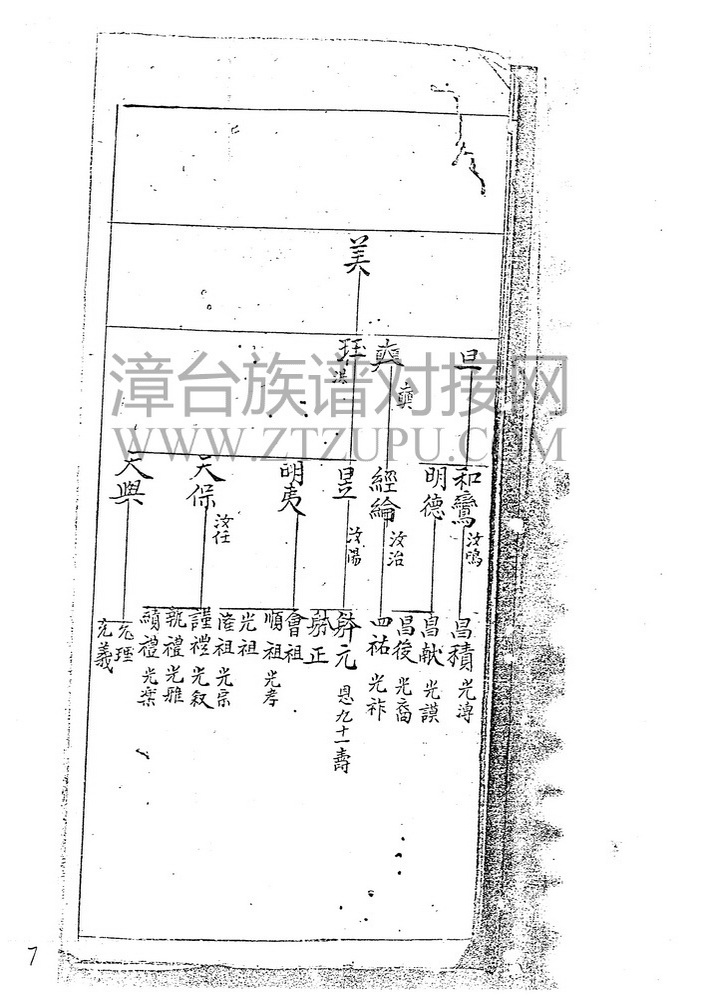 美
旦
奭
奭
珏
淇
和鸞
汝鳴
明德
經綸
汝治
昱
汝陽
明夷
天保
汝任
天與
昌積 光溥
昌献 光謨
昌後 光裔
四祐 光祚
元 恩九十一壽
正
會祖
順祖 光孝
光祖
隆祖 光宗
謹禮 光叙
執禮 光雅
續禮 光樂
允理
充義
漳台族谱对接网
WWW.ZTZUPU.COM
7